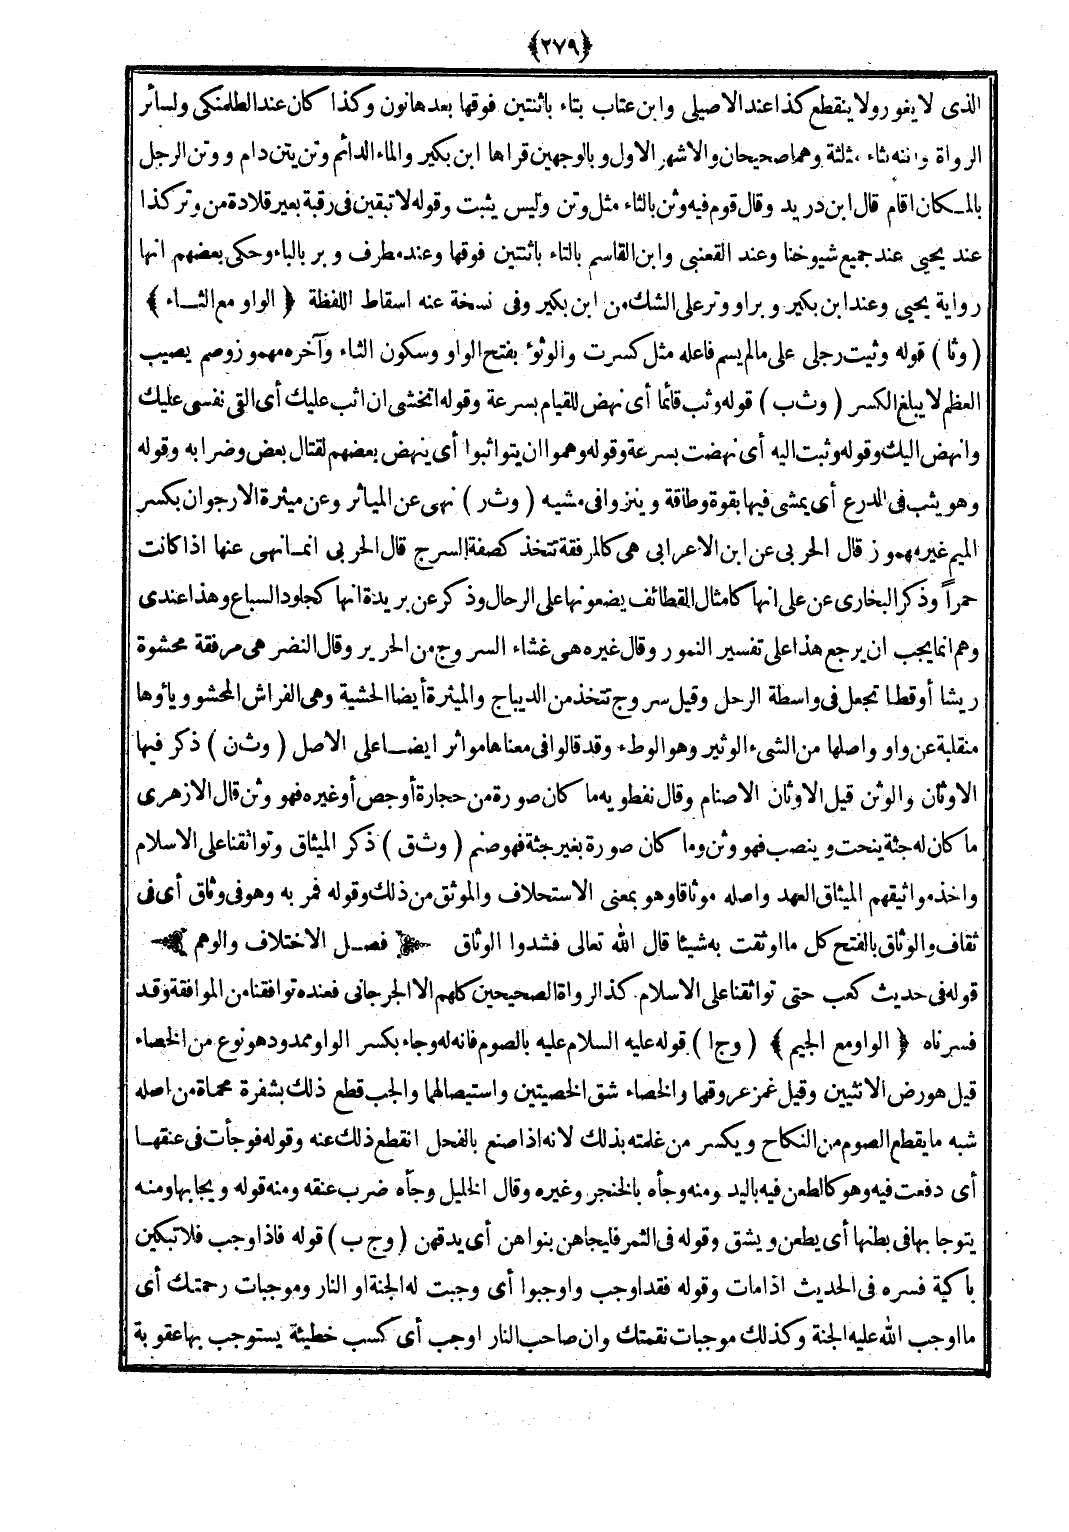 ﴿٢٧٩﴾
الذى لا يغور ولا ينقطع كذا عند الاصيلى وابن عتاب بتاء باثنتين فوقها بعدها نون وكذا كان عند الطلمنكى ولسائر
الرواة واثنه بثاء مثلثة وهما صحيحان والاشهر الاول وبالوجهين قراها ابن بكير والماء الدائم وتن يتن دام ووتن الرجل
بالمـكان اقام قال ابن دريد وقال قوم فيه وثن بالثاء مثل وتن وليس يثبت وقوله لا تبقين فى رقبة بعير قلادة من وتر كذا
عند يحيى عند جميع شيوخنا وعند القعنبى وابن القاسم بالتاء باثنتين فوقها وعند مطرف وبر بالباء وحكى بعضهم انها
رواية يحيى وعند ابن بكير وبر او وتر على الشك من ابن بكير وفى نسخة عنه اسقاط اللفظة ﴿ الواو مع الثـاء ﴾
( وثا ) قوله وثيت رجلى على مالم يسم فاعله مثل كسرت والوثؤ بفتح الواو وسكون الثاء وآخره مهموز وصم يصيب
العظم لا يبلغ الكسر ( وث ب ) قوله وثب قائما أى نهض للقيام بسرعة وقوله اتخشى ان اثب عليك أى القى نفسى عليك
وانهض اليك وقوله وثبت اليه أى نهضت بسرعة وقوله وهموا ان يتواثبوا أى ينهض بعضهم لقتال بعض وضرابه وقوله
وهو يثب فى الدرع أى يمشى فيها بقوة وطاقة وينزوا فى مشيه ( وث ر ) نهى عن المياثر وعن ميثرة الارجوان بكسر
الميم غير مهموز قال الحربى عن ابن الاعرابى هى كالمرفقة تتخذ كصفة السرج قال الحربى انمـا نهى عنها اذا كانت
حمراً وذكر البخارى عن على انها كامثال القطائف يضعونها على الرحال وذكر عن بريدة انها كجلود السباع وهذا عندى
وهم انما يجب ان يرجع هذا على تفسير النمور وقال غيره هى غشاء السروج من الحرير وقال النضر هى مرفقة محشوة
ريشا أو قطنا تجعل فى واسطة الرحل وقيل سروج تتخذ من الديباج والميثرة أيضا الحشية وهى الفراش المحشو وياؤها
منقلبة عن واو واصلها من الشىء الوثير وهو الوطىء وقد قالوا فى معناها مواثر ايضـا على الاصل ( وث ن ) ذكر فيها
الاوثان والوثن قيل الاوثان الاصنام وقال نفطويه ما كان صورة من حجارة أو جص أو غيره فهو وثن قال الازهرى
ما كان له جثة ينحت وينصب فهو وثن وما كان صورة بغير جثة فهو صنم ( وث ق ) ذكر الميثاق وتواثقنا على الاسلام
واخذ مواثيقهم الميثاق العهد واصله موثاقا وهو بمعنى الاستحلاف والموثق من ذلك وقوله فمر به وهو فى وثاق أى فى
ثقاف والوثاق بالفتح كل ما اوثقت به شيئا قال الله تعالى فشدوا الوثاق فصـل الاختلاف والوهم
قوله فى حديث كعب حتى تواثقنا على الاسلام كذا لرواة الصحيحين كلهم الا الجرجانى فعنده توافقنا من الموافقة وقـد
فسرناه ﴿ الواو مع الجيم ﴾ ( وج ا ) قوله عليه السلام عليه بالصوم فانه له وجاء بكسر الواو ممدود هو نوع من الخصاء
قيل هو رض الانثيين وقيل غمز عروقهما والخصاء شق الخصيتين واستيصالهما والجب قطع ذلك بشفرة محماة من اصله
شبه ما يقطع الصوم من النكاح ويكسر من غلمته بذلك لانه اذا صنع بالفحل انقطع ذلك عنه وقوله فوجأت فى عنقهـا
أى دفعت فيه وهو كالطعن فيه باليد ومنه وجأه بالخنجر وغيره وقال الخليل وجأه ضرب عنقه ومنه قوله ويجا بها ومنـه
يتوجا بها فى بطنها أى يطعن ويشق وقوله فى الثمر فليجاهن بنواهن أى يدقهن ( وج ب ) قوله فاذا وجب فلا تبكين
باكية فسره فى الحديث اذا مات وقوله فقد اوجب واوجبوا أى وجبت له الجنة او النار وموجبات رحمتـك أى
ما اوجب الله عليه الجنة وكذلك موجبات نقمتك وان صاحب النار اوجب أى كسب خطيئة يستوجب بها عقوبة